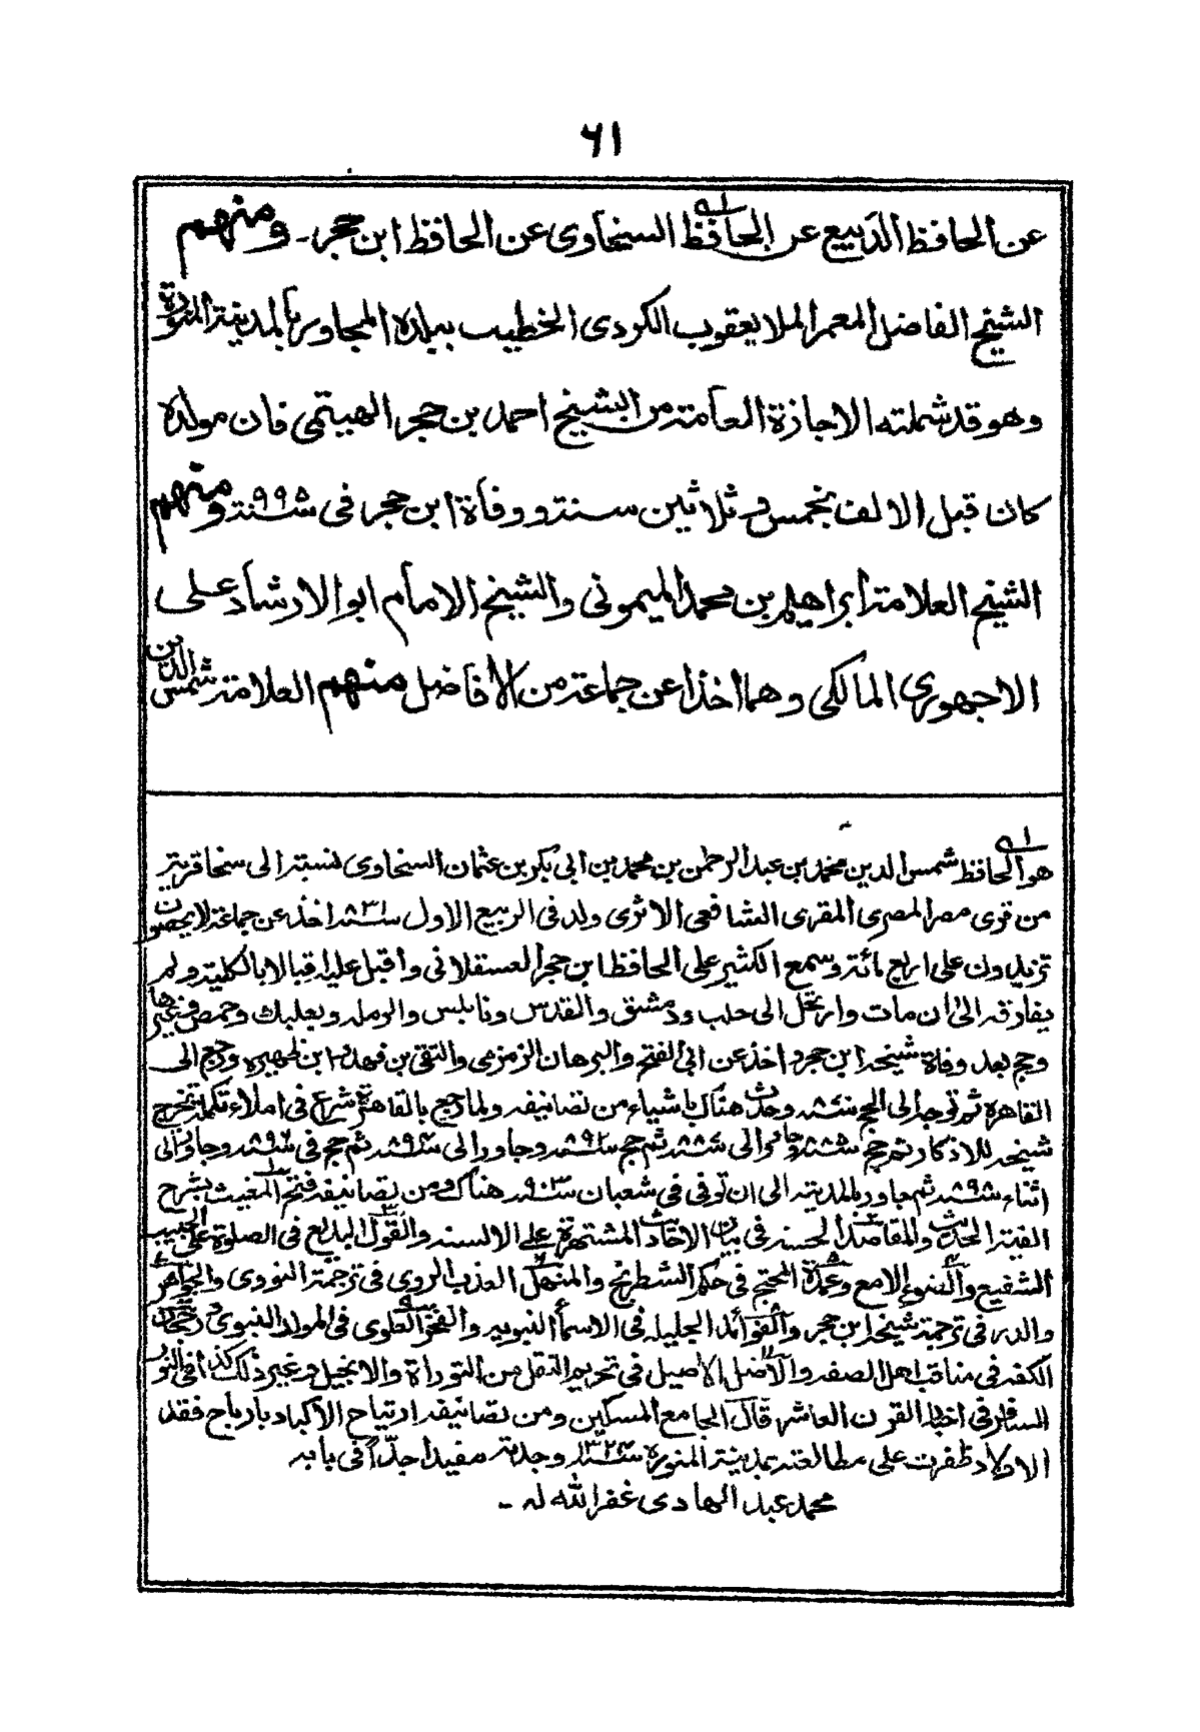 ٦١
عن الحافظ الديبع عن الحافظ السخاوى عن الحافظ ابن حجر۔ ومنهم
الشيخ الفاضل المعمر الملا يعقوب الكردى الخطيب ببلده المجاور بالمدينة المنورة
وهو قد شملته الاجازة العامة من الشيخ احمد بن حجر الهيتمى فان مولده
كان قبل الالف بخمس وثلاثين سنة ووفاة ابن حجر فى سنة ٩٩٥ ومنهم
الشيخ العلامة ابراهيم بن محمد الميمونى والشيخ الامام ابو الارشاد على
الاجهورى المالكى وهما اخذا عن جماعة من الافاضل منهم العلامة شمس الدين
هو الحافظ شمس الدين محمد بن عبد الرحمن بن محمد بن ابى بكر بن عثمان السخاوى نسبة الى سخا قرية
من قرى مصر المصرى المقرى الشافعى الاثرى ولد فى الربيع الاول سنة ٨٣١ اخذ عن جماعة لا يحصون
تزيدون على اربع مائة وسمع الكثير على الحافظ ابن حجر العسقلانى واقبل عليه اقبالا بالكلية ولم
يفارقه الى ان مات وارتحل الى حلب ودمشق والقدس ونابلس والرمله وبعلبك وحمص وغيرها
وحج بعد وفاة شيخه ابن حجر واخذ عن ابى الفتح والبرهان الزمزمى والتقى بن فهد وابن ظهيره ورجع الى
القاهرة ثم توجه الى الحج سنة وحدث هناك باشياء من تصانيفه ولما رجع بالقاهرة شرع فى املاء تكملة تخريج
شيخه للاذكار ثم حج وجاور الى ثم حج سنة ٨٩٢ وجاور الى ثم حج فى وجاور الى
اثناء سنة ٨٩٨ ثم جاور بالمدينة الى ان توفى فى شعبان سنة ٩٠٢ هناك ومن تصانيفه فتح المغيث بشرح
الفية الحديث والمقاصد الحسنه فى بيان الاحاديث المشتهرة على الالسنه والقول البديع فى الصلوة على الحبيب
الشفيع والضوء الامع وعمدة المحتج فى حكم الشطرنج والمنهل العذب الروى فى ترجمة النووى والجواهر
والدرر فى ترجمة شيخه ابن حجر والفوائد الجليله فى الاسماء النبويه والفخر العلوى فى المولد النبوى ورجحان
الكفه فى مناقب اهل الصفه والاصل الاصيل فى تحريم النقل من التوراة والانجيل وغير ذلك كذا فى النور
السافر فى اخبار القرن العاشر قال الجامع المسكين ومن تصانيفه ارتياح الاكباد بارباح فقد
الاولاد ظفرت على مطالعته بمدينة المنوره سنة ١٣٢٣ وجدته مفيدا جداً فى بابه
محمد عبد الهادى غفر الله له ۔